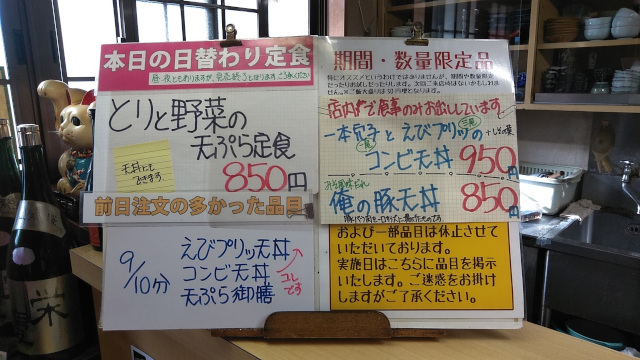 本日の日替わり定食
昼、夜ともありますが、完売続きとなります。ご了承ください
とりと野菜の
天ぷら定食
天丼にも
できます
850円
前日注文の多かった品目
9/10分
えびプリッ天丼
コンビ天丼
天ぷら御膳
コレです
期間・数量限定品
特にオススメというわけではありませんが、期間や数量限定
店内で食事のみお出ししています
一本穴子と えびプリッの
コンビ天丼 950円
俺の豚天丼 850円
および一部品目は休止させて
いただいております。
実施日はこちらに品目を掲示
いたします。ご迷惑をお掛け
しますがご了承ください。